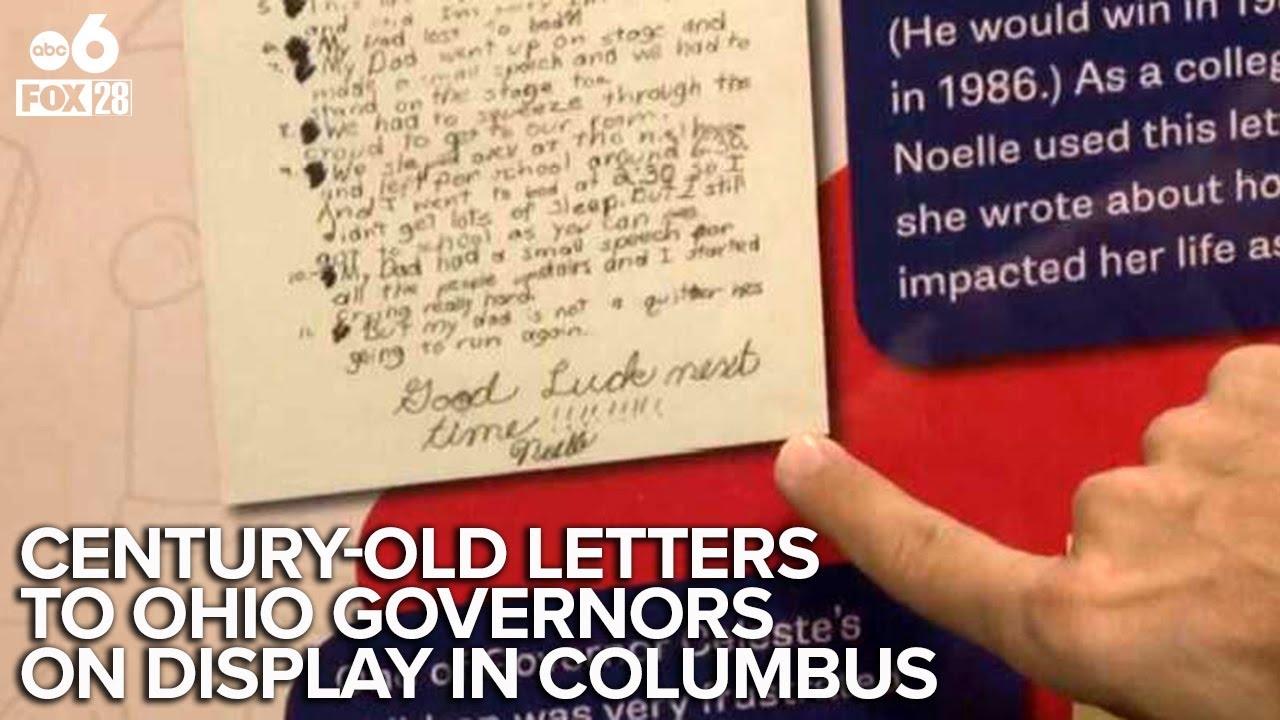 abc 6
FOX 28
My Dad lost to bad!!
My Dad went up on stage and
made a small speech and we had to
stand on the stage too.
We had to squeeze through the
croud to get to our room.
We slept over at the
and left for school around 6:30.
And I went to bed at 2:30 so I
didn't get lots of sleep. But I still
got to school as you can see
10. My Dad had a small speech for
all the people upstairs and I started
crying really hard.
11. But my dad is not a quitter hes
going to run again.
Good Luck next
time !!!!!!!!!
Noelle
(He would win in
in 1986.) As a
Noelle used this
she wrote about
impacted her life
of Governor Celeste's
was very
CENTURY-OLD LETTERS
TO OHIO GOVERNORS
ON DISPLAY IN COLUMBUS